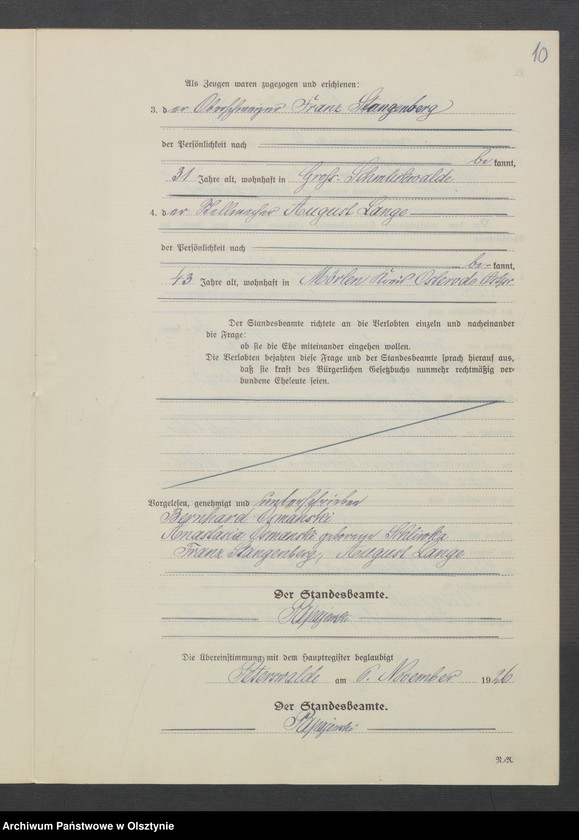 10
Als Zeugen waren zugezogen und erschienen:
3. der Oberschweizer Franz Stangenberg
der Persönlichkeit nach
be kannt,
31 Jahre alt, wohnhaft in Groß-Schmückwalde
4. der Stellmacher August Lange
der Persönlichkeit nach
be- kannt,
43 Jahre alt, wohnhaft in Mörlen Kreis Osterode Ostpr.
Der Standesbeamte richtete an die Verlobten einzeln und nacheinander
die Frage:
ob sie die Ehe miteinander eingehen wollen.
Die Verlobten bejahten diese Frage und der Standesbeamte sprach hierauf aus,
daß sie kraft des Bürgerlichen Gesetzbuchs nunmehr rechtmäßig ver-
bundene Eheleute seien.
Vorgelesen, genehmigt und unterschrieben
Bernhard Osmanski
Anastasia Osmanski geborene
Franz Stangenberg, August Lange
Der Standesbeamte.
Die Übereinstimmung mit dem Hauptregister beglaubigt
Peterswalde am 6. November 1926
Der Standesbeamte.
Archiwum Państwowe w Olsztynie